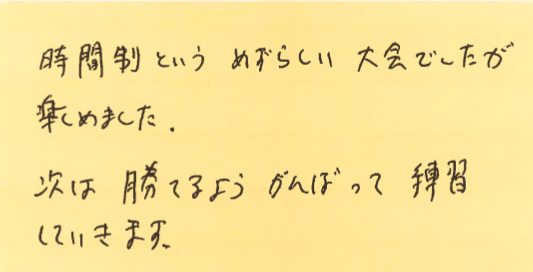 時間制という めずらしい 大会でしたが
楽しめました.
次は 勝てるよう がんばって 練習
していきます。